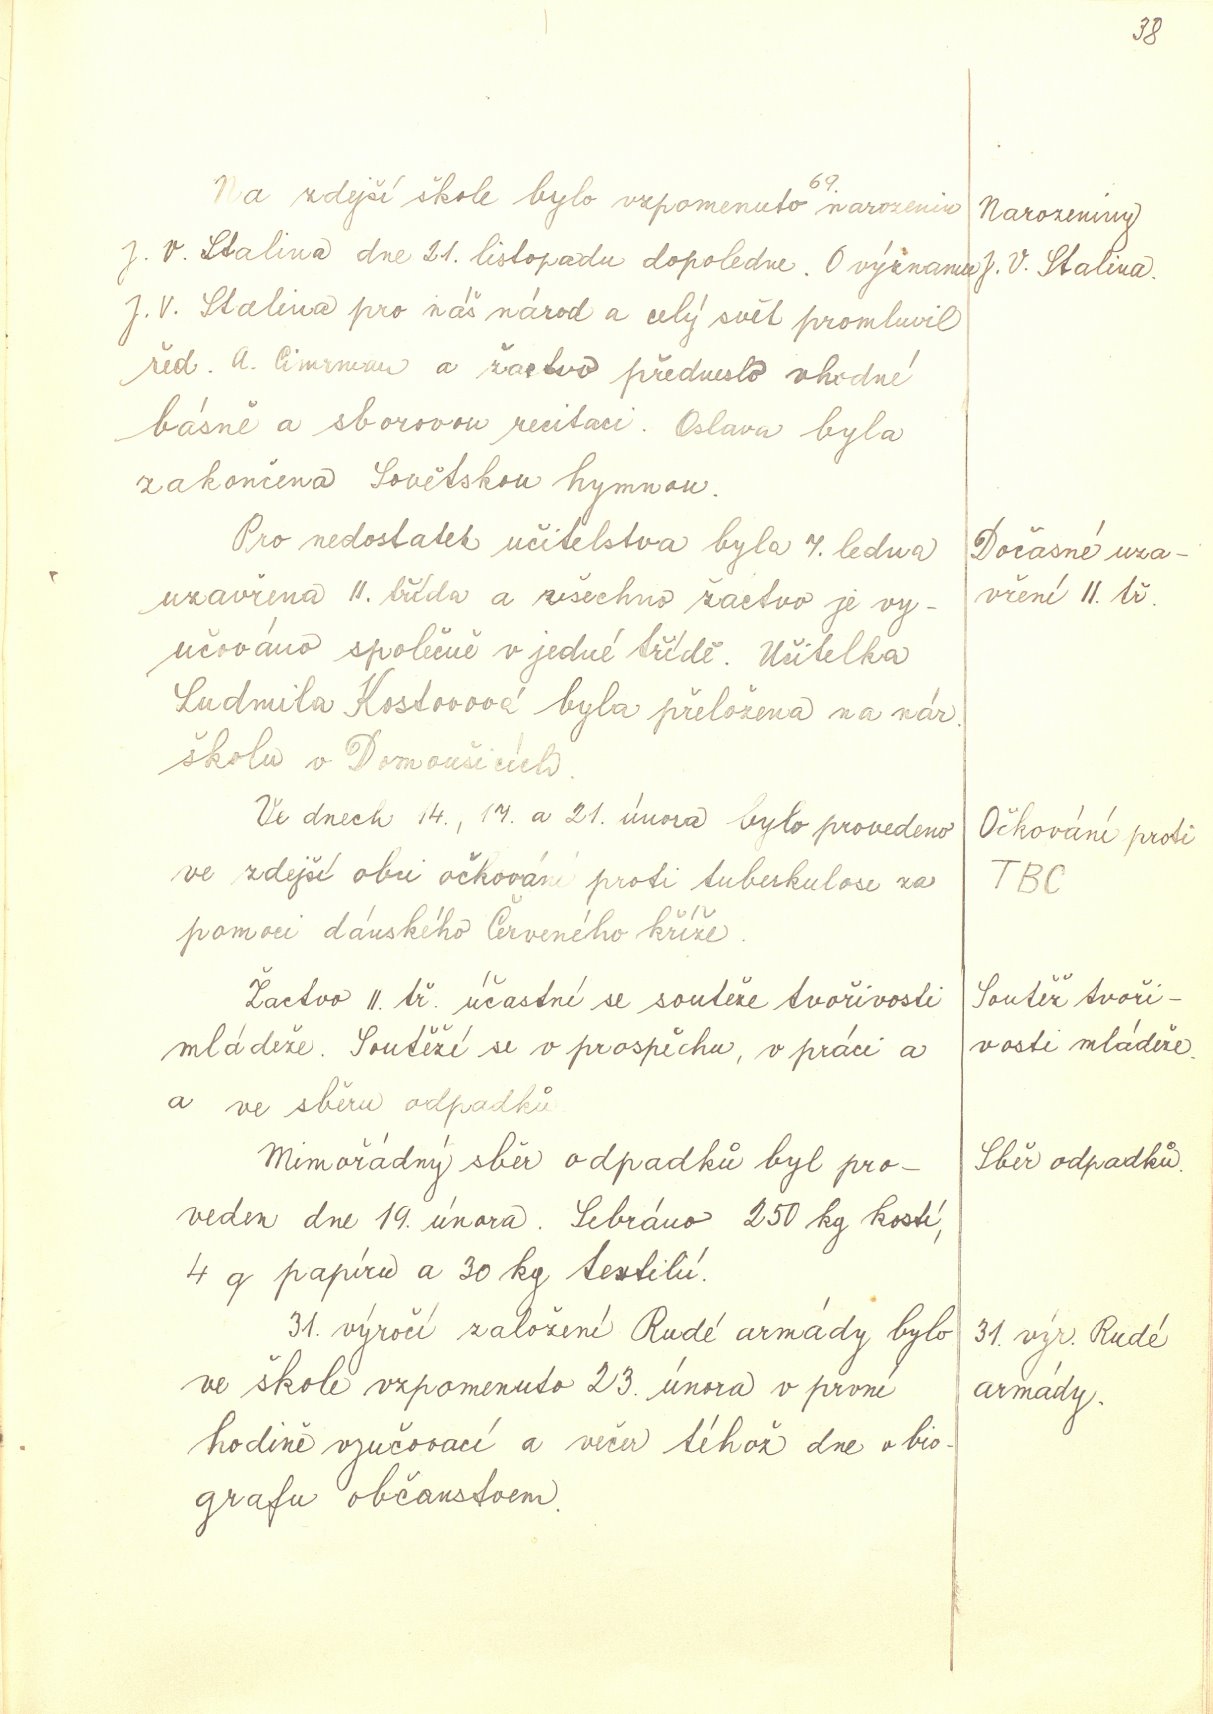 38
Na zdejší škole bylo vzpomenuto 69. narozenin
J. V. Stalina dne 21. listopadu dopoledne. O významu
J. V. Stalina pro náš národ a celý svět promluvil
řed. A. Cimrman a žactvo předneslo vhodné
básně a sborovou recitaci. Oslava byla
zakončena Sovětskou hymnou.
Narozeniny
J. V. Stalina.
Pro nedostatek učitelstva byla 7. ledna
uzavřena II. třída a všechno žactvo je vy-
učováno společně v jedné třídě. Učitelka
Ludmila Kostovová byla přeložena na nár.
školu v Domoušicích.
Dočasné uza-
vření II. tř.
Ve dnech 14., 17. a 21. února bylo provedeno
ve zdejší obci očkování proti tuberkulose za
pomoci dánského Červeného kříže.
Očkování proti
TBC
Žactvo II. tř. účastní se soutěže tvořivosti
mládeže. Soutěží se v prospěchu, v práci a
a ve sběru odpadků
Soutěž tvoři-
vosti mládeže.
Mimořádný sběr odpadků byl pro-
veden dne 19. února. Sebráno 250 kg kostí,
4 q papíru a 30 kg textilií.
Sběr odpadků.
31. výročí založení Rudé armády bylo
ve škole vzpomenuto 23. února v první
hodině vyučovací a večer téhož dne v bio-
grafu občanstvem.
31. výr. Rudé
armády.